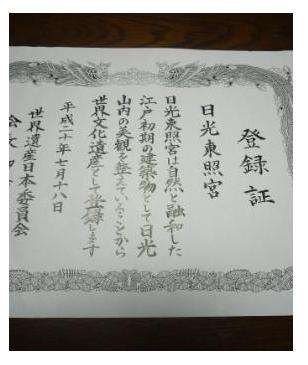 登録証
日光東照宮
日光東照宮は自然と融和した
江戸初期の建築物として日光
山内の美観を整えていることから
世界文化遺産として登録します
平成二十年七月十八日
世界遺産日本委員会
会